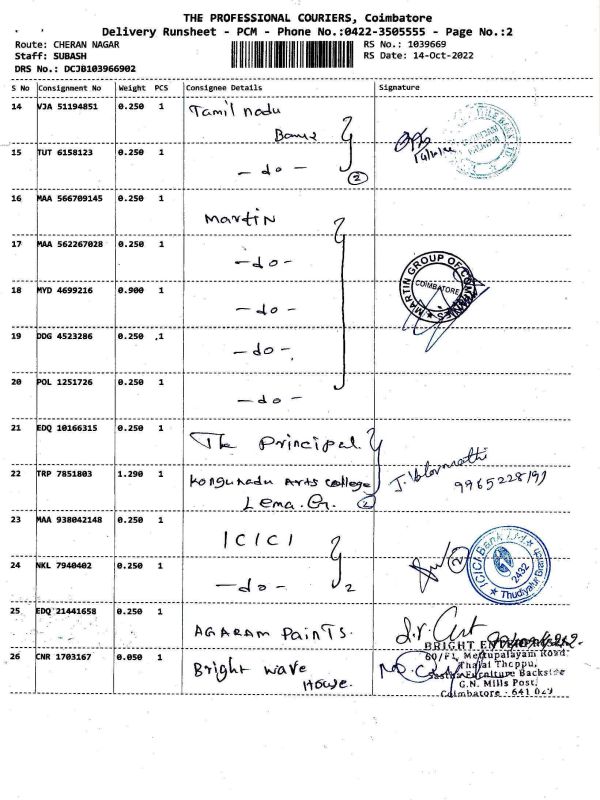 THE PROFESSIONAL COURIERS, Coimbatore
Delivery Runsheet - PCM - Phone No.:0422-3505555 - Page No.:2
Route: CHERAN NAGAR RS No.: 1039669
Staff: SUBASH RS Date: 14-Oct-2022
DRS No.: DCJB103966902
S No Consignment No Weight PCS Consignee Details Signature
14 VJA 51194851 0.250 1 Tamil nadu
15 TUT 6158123 0.250 1 - do - 2
16 MAA 566709145 0.250 1 Martin
17 MAA 562267028 0.250 1 - do -
18 MYD 4699216 0.900 1 - do -
MARTIN GROUP OF COMPANIES
COIMBATORE
19 DDG 4523286 0.250 1 - do -
20 POL 1251726 0.250 1 - do -
21 EDQ 10166315 0.250 1 The Principal
22 TRP 7851803 1.290 1 Kongunadu Arts College
Lema. Gr. 2
23 MAA 938042148 0.250 1 ICICI
24 NKL 7940402 0.250 1 - do - 2
2
ICICI Bank Ltd
2432
Thudiyalur Branch
25 EDQ 21441658 0.250 1 AGARAM PAINTS.
26 CNR 1703167 0.050 1 Bright wave
House.
BRIGHT
60/F1, Mettupalayam Road.
Thalai Thoppu,
Sastha Furniture Backside
G.N. Mills Post,
Coimbatore - 641 029